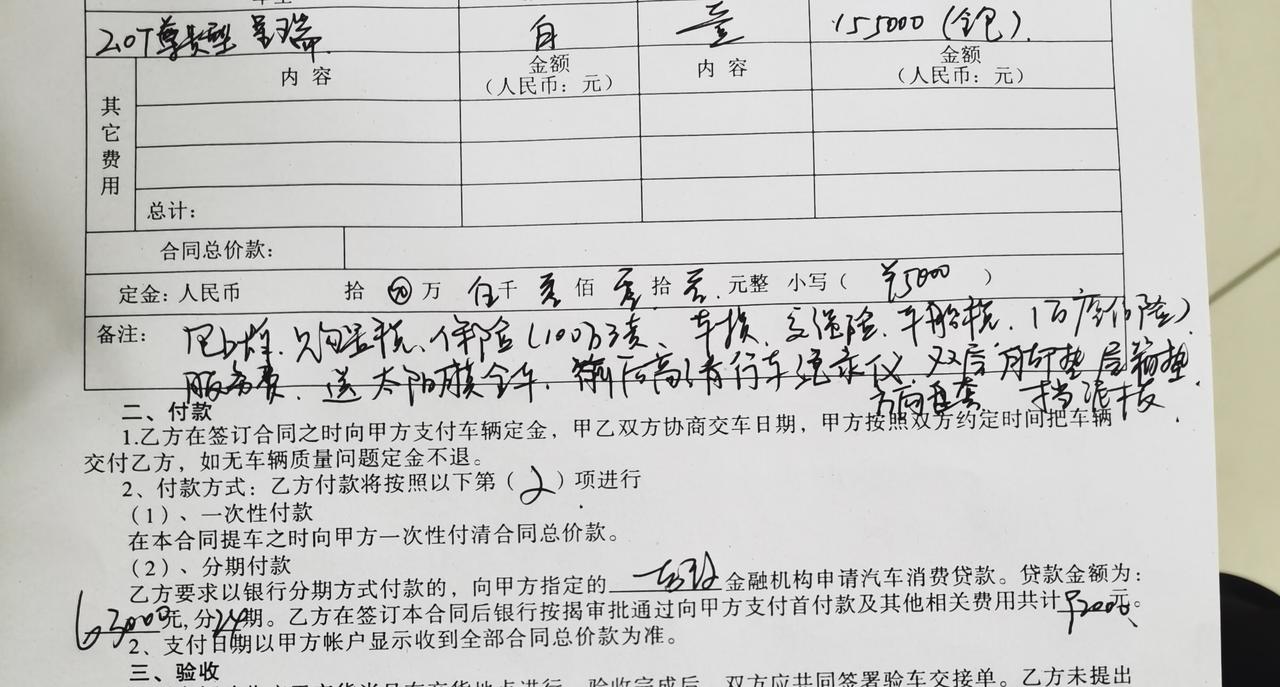 2.0T尊贵型 君瑞 白 壹 155000(全包)
其它费用 内容 金额（人民币：元） 内容 金额（人民币：元）
总计：
合同总价款：
定金：人民币 拾 万 伍千 零佰 零拾 零 元整 小写（ ¥5000 ）
备注： 已上牌、只购置税、保险(100万三责、车损、交强险、车船税、1万座位险)
服务费、送太阳膜全车、前后高清行车记录仪、双层脚垫 后箱垫
方向盘套 挡泥板
二、付款
1.乙方在签订合同之时向甲方支付车辆定金，甲乙双方协商交车日期，甲方按照双方约定时间把车辆
交付乙方，如无车辆质量问题定金不退。
2、付款方式：乙方付款将按照以下第（2）项进行
（1）、一次性付款
在本合同提车之时向甲方一次性付清合同总价款。
（2）、分期付款
乙方要求以银行分期方式付款的，向甲方指定的 金融机构申请汽车消费贷款。贷款金额为：
63000元,分24期。乙方在签订本合同后银行按揭审批通过向甲方支付首付款及其他相关费用共计92000元。
2、支付日期以甲方帐户显示收到全部合同总价款为准。
三、验收